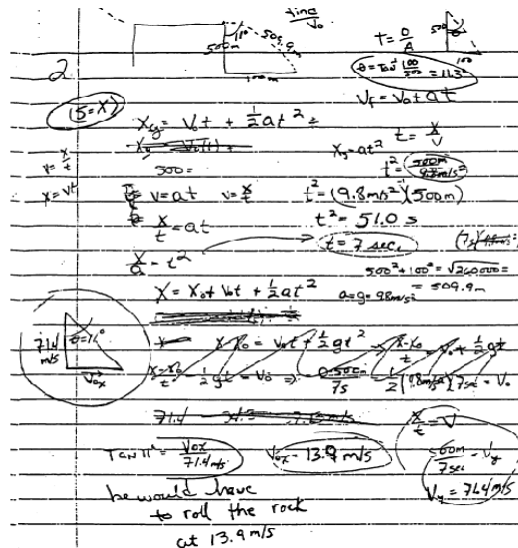 500m
509.9m
100m
T = O/A
500
100
θ = Tan⁻¹ 100/500 = 11.3°
2
Vf = Vo + at
(5 = X)
Xy = Vot + ½at² =
t = X/V
Xy = at²
v = x/t
500 =
t² = 500m/9.8m/s²
x = vt
v = at v = x/t
t² = (9.8m/s²)⁻¹(500m)
x/t = at
t² = 51.0 s
x/a = t²
t = 7 sec.
500² + 100² = √260000 =
= 509.9m
X = Xo + Vot + ½at² a = g = 9.8m/s²
71.4 m/s
θ = 11°
Vox
X - Xo = Vot + ½gt² X-Xo/t = Vo + ½gt
X-Xo/t - ½gt = Vo ⇒ 0-500m/7s - ½(9.8m/s²)(7sec) = Vo
71.4
x/t = V
Tan 11° = Vox/71.4m/s Vox = 13.9 m/s
500m/7sec = Vy
Vy = 71.4 m/s
he would have
to roll the rock
at 13.9 m/s